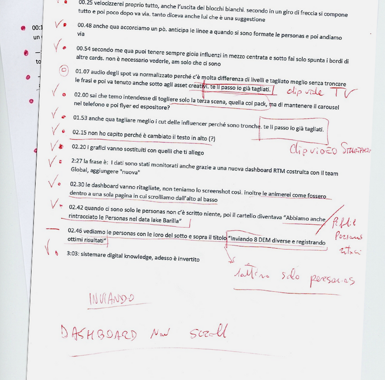 00.25 velocizzerei proprio tutto, anche l'uscita dei blocchi bianchi. secondo in un giro di freccia si compone
tutto e poi poco dopo va via. tanto diceva anche lui che è una suggestione
00.48 anche qua accorciamo un pò. anticipa le linee a quando si sono formate le personas e poi andiamo
via
00.54 secondo me qua puoi tenere sempre gioia influenzi in mezzo centrata e sotto fai solo spunta i bordi di
altre cards. non è necessario vederle, am solo che ci sono
01.07 audio degli spot va normalizzato perché c'è molta differenza di livelli e tagliato meglio senza troncare
le frasi e poi va tenuto anche sotto agli asset creativi. te li passo io già tagliati.
clip video TV
02.00 sai che temo intendesse di togliere solo la terza scena, quella col pack, ma di mantenere il carousel
nel telefono e poi flyer ed espositore?
01.53 anche qua tagliare meglio i cut delle influencer perché sono tronche. te li passo io già tagliati.
clip video
02.15 non ho capito perché è cambiato il testo in alto (?)
02.20 i grafici vanno sostituiti con quelli che ti allego
2:27 la frase è: I dati sono stati monitorati anche grazie a una nuova dashboard RTM costruita con il team
Global, aggiungere "nuova"
02.30 le dashboard vanno ritagliate, non teniamo lo screenshot così. Inoltre le animerei come fossero
dentro a una sola pagina in cui scrolliamo dall'alto al basso
02.42 quando ci sono solo le personas non c'è scritto niente, poi il cartello diventava "Abbiamo anche
rintracciato le Personas nel data lake Barilla"
02.46 vediamo le personas con le loro dem sotto e sopra il titolo "inviando 8 DEM diverse e registrando
ottimi risultati"
lattina solo personas
3:03: sistemare digital knowledge, adesso è invertito
INVIANDO
DASHBOARD NON SCROLL